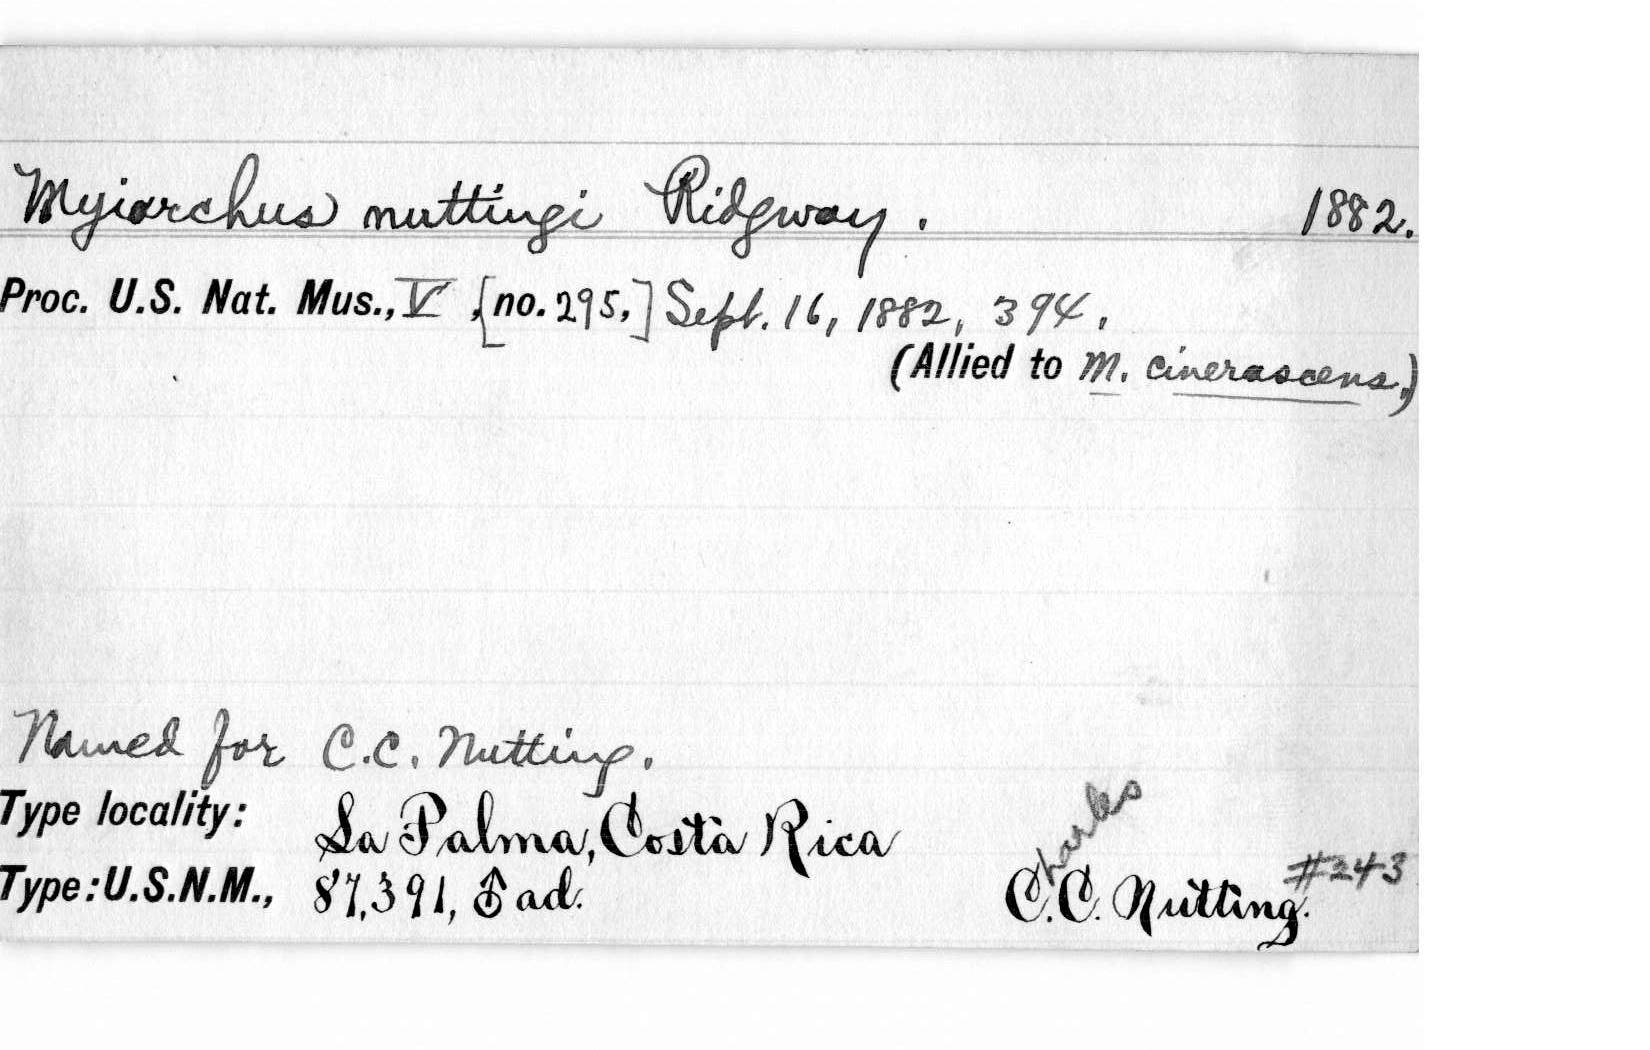 Myiarchus nuttingi Ridgway. 1882.
Proc. U.S. Nat. Mus., V, [no. 295,] Sept. 16, 1882, 394.
(Allied to M. cinerascens.)
Named for C.C. Nutting.
Type locality: La Palma, Costa Rica
Charles
Type: U.S.N.M., 87,391, ♂ ad. C.C. Nutting. #243